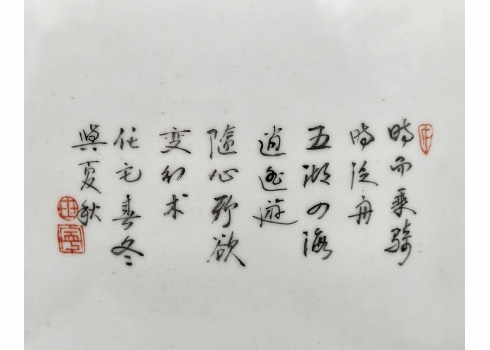 時而乘騎
時泛舟
五湖四海
逍遙遊
隨心所欲
变幻术
任它春冬
與夏秋